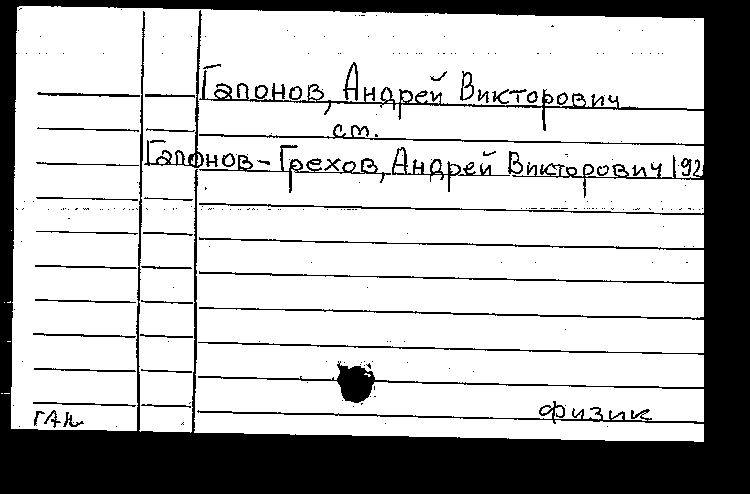 Гапонов, Андрей Викторович
см.
Гапонов-Грехов, Андрей Викторович 192
физик